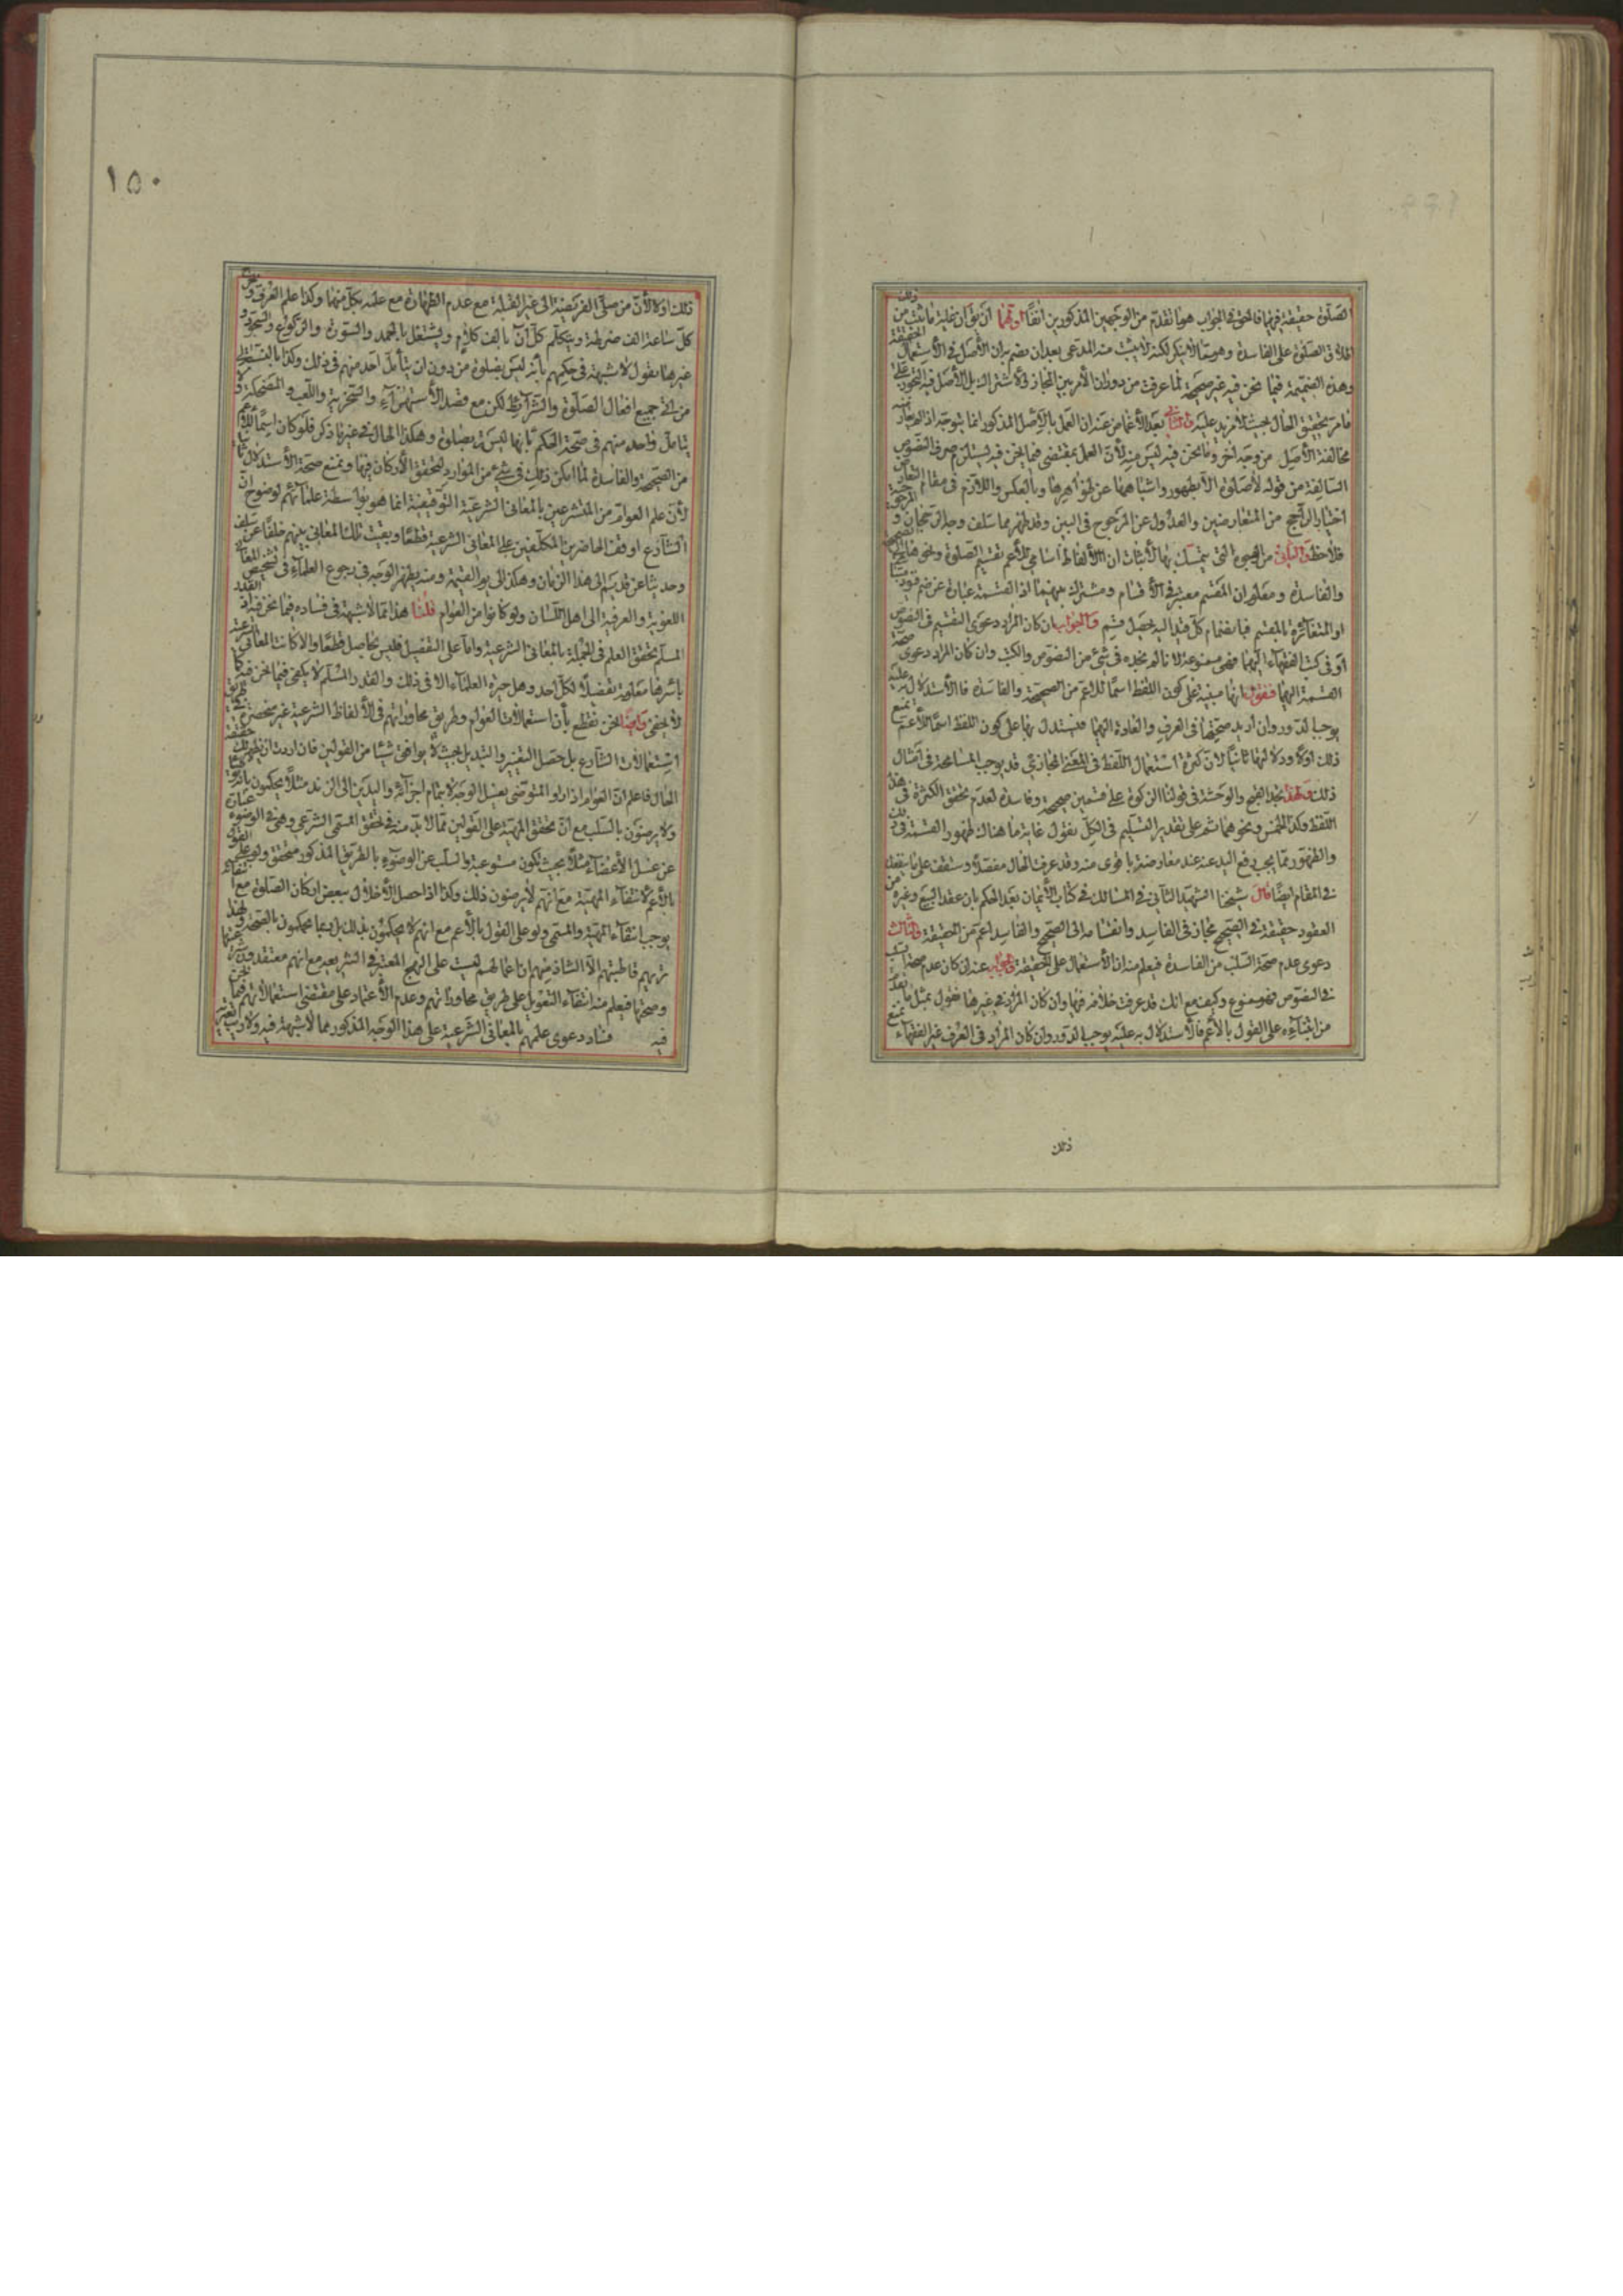 الصلوة حقيقة فيها فالحق في الجواب هو ما تقدم من الوجهين المذكورين انفا او لهما ان يق ان غاية ما يثبت من ذلك
اطلاق الصلوة على الفاسدة وهو مما لا ينكر لكنه لا يثبت منه المدعى بعد ان يضم بان الأصل في الأستعمال الحقيقة
وهذه الضميمة فيما نحن فيه غير صحيحة لما عرفت من دوران الأمر بين المجاز والأشتراك بل الأصل فيه التجوز على
ما مر تحقيق الحال بحيث لا مزيد عليه والثاني بعد الأغماض عنه ان العمل بالأصل المذكور انما يتوجه اذا لم يعارضه
مخالفة الأصل من وجه اخر وما نحن فيه ليس منه لأن العمل بمقتضى فيما نحن فيه يستلزم صرف النصوص
السالفة من قوله لا صلوة الا بطهور واشباهها عن ظواهرها وبالعكس واللازم في مقام التعارض
اختيار الراجح من المتعارضين والعدول عن المرجوح في البين وقد ظهر مما سلف وجه الرجحان و المرجوحية
فلاحظ والثاني من الوجوه التي يتمسك بها لأثبات ان الألفاظ اسامي للأعم تقسيم الصلوة ونحوها الى الصحيحة
والفاسدة ومعلوم ان المقسم معتبر في الأقسام ومشترك بينهما اذ القسمة عبارة عن ضم قيود متباينة
او المتغائرة بالمقسم فبانضمام كل قيد اليه حصل قسم والجواب ان كان المراد دعوى التقسيم في النصوص
او في كتب الفقهاء اليهما فهي ممنوعة لانا لم نجده في شيء من النصوص والكتب وان كان المراد دعوى صحة
القسمة اليهما فنقول انها مبنية على كون اللفظ اسما للاعم من الصحيحة والفاسدة فالأستدلال بها عليه
يوجب الدور وان اريد صحتها في العرف والعادة اليهما فيستدل بها على كون اللفظ اسما للأعم نمنع
ذلك اولا ودلالتها ثانيا لان كثرة استعمال اللفظ في المعنى المجازي قد يوجب المسامحة في امثال
ذلك ولهذا نجد القبح والوحشة في قولنا الزكوة على قسمين صحيحة وفاسدة لعدم تحقق الكثرة في هذا
اللفظ وكذا الخمس ونحوهما ثم على تقدير التسليم في الكل نقول غاية ما هناك ظهور القسمة في ذلك
والظهور مما يجب رفع اليد عنه عند معارضته باقوى منه وقد عرفت الحال مفصلا وستقف على ما ينفعك
في المقام ايضا قال شيخنا الشهيد الثاني في المسالك في كتاب الأيمان بعد الحكم بان عقد البيع وغيره من
العقود حقيقة في الصحيح مجاز في الفاسد وانقسامه الى الصحيح والفاسد اعم من الحقيقة والثالث
دعوى عدم صحة السلب من الفاسدة فيعلم منه ان الأستعمال على الحقيقة والجواب عنه ان كان عدم صحة السلب
في النصوص فهو ممنوع وكيف مع انك قد عرفت خلافه فيها وان كان المراد في غيرها نقول بمثل ما تقدم
من ابتناءه على القول بالأعم فالأستدلال به عليه يوجب الدور وان كان المراد في العرف غير الفقهاء نمنع
ذلك
١٥٠
ذلك اولا لأن من صلى الفريضة الى غير القبلة مع عدم الطهارة مع علمه بكل منهما وكذا علم العرف و
كل ساعة الف ضرطة ويتكلم كل آن بالف كلام ويشتغل بالحمد والسورة والركوع والسجود و
غيرها نقول لا شبهة في حكمهم بأنه ليس بصلوة من دون ان يتأمل احد منهم في ذلك وكذا بالنسبة الى
من اتى جميع افعال الصلوة والشرائط لكن مع قصد الأستهزاء والسخرية واللعب و المضحكة
يتامل واحد منهم في صحة الحكم بانها ليست بصلوة وهكذا الحال في غير ما ذكر فلو كان اسما للأعم
من الصحيحة والفاسدة لما امكن ذلك في شيء من الموارد لتحقق الأركان فيها ونمنع صحة الأستدلال
لأن علم العوام من المتشرعين بالمعاني الشرعية التوقيفية انما هو بواسطة علمائهم لوضوح ان
الشارع اوقف الحاضرين المكلفين على المعاني الشرعية قطعا وبقيت تلك المعاني بينهم خلفا عن سلف
وحديثا عن قديم الى هذا الزمان وهكذا الى يوم القيمة ومنه يظهر الوجه في رجوع العلماء في تشخيص المعاني
اللغوية والعرفية الى اهل اللسان ولو كانوا من العوام قلنا هذا مما لا شبهة في فساده فيما نحن فيه اذ القدر
المسلم تحقق العلم في الجملة بالمعاني الشرعية واما على التفصيل فليس بحاصل قطعا والا كانت المعاني الشرعية
باسرها معلومة تفصيلا لكل احد وهل حيرة العلماء الا في ذلك والقدر المسلم لا يكفي فيما نحن فيه كما
لا يخفى وايضا نحن نقطع بأن استعمالات العوام وطريق محاوراتهم في الألفاظ الشرعية غير منحصرة في طريق
استعمالات الشارع بل حصل التغيير والتبديل بحيث لا يوافق شيئا من القولين فان اردت ان يظهر لك حقيقة
الحال فاعلم ان العوام اذا راوا المتوضي يغسل الوجه لا بتمام اجزائه واليدين الى الزند مثلا يحكمون بانه توضأ
ولا يرضون بالسلب مع ان تحقق المهية على القولين مما لا بد منه في تحقق المسمى الشرعي وهي في الوضوء عبارة
عن غسل الأعضاء مثلا بحيث تكون مستوعبة والسلب عن الوضوء بالطريق المذكور متحقق ولو على القول
بالأعم لانتفاء المهية مع انهم لا يرضون ذلك وكذا اذا حصل الأخلال ببعض اركان الصلوة مع انه
يوجب انتفاء المهية والمسمى ولو على القول بالأعم مع انهم لا يحكمون بذلك بل ربما يحكمون بالصحة ولهذا
تريهم قاطبتهم الا الشاذ منهم ان اعمالهم ليست على النهج المعتبر في الشريعة مع انهم معتقدون
وصحتها فيعلم منه انتفاء التعويل على طريق محاوراتهم وعدم الأعتماد على مقتضى استعمالاتهم فيما نحن
فيه فساد دعوى علمهم بالمعاني الشرعية على هذا الوجه المذكور مما لا شبهة فيه ولا ريب